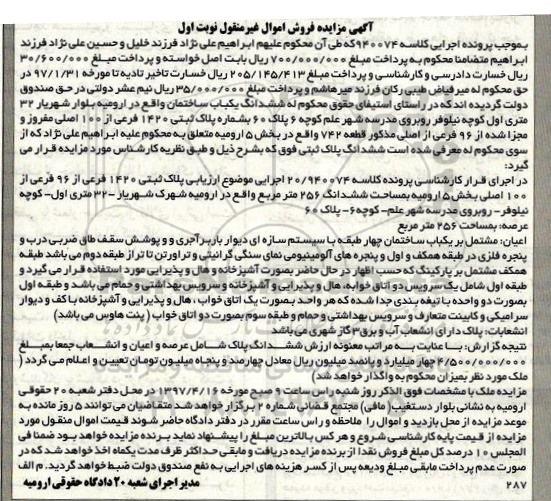 آگهی مزایده فروش اموال غیرمنقول نوبت اول
بموجب پرونده اجرایی کلاسه ۹۴۰۰۷۴ که طی آن محکوم علیهم ابراهیم علی نژاد فرزند خلیل و حسین علی نژاد فرزند
ابراهیم متضامنا محکوم به پرداخت مبلغ ۷۰۰/۰۰۰/۰۰۰ ریال بابت اصل خواسته و پرداخت مبلغ ۳۰/۶۰۰/۰۰۰
ریال خسارت دادرسی و کارشناسی و پرداخت مبلغ ۲۰۵/۱۴۵/۴۱۳ ریال خسارت تاخیر تادیه تا مورخه ۹۷/۱/۳۱ در
حق محکوم له میرفیاض طیبی رکان فرزند میرهاشم و پرداخت مبلغ ۳۵/۰۰۰/۰۰۰ ریال نیم عشر دولتی در حق صندوق
دولت گردیده اند که در راستای استیفای حقوق محکوم له ششدانگ یکباب ساختمان واقع در ارومیه بلوار شهریار ۳۲
متری اول کوچه نیلوفر روبروی مدرسه شهر علم کوچه ۶ پلاک ۶۰ بشماره پلاک ثبتی ۱۴۲۰ فرعی از ۱۰۰ اصلی مفروز و
مجزا شده از ۹۶ فرعی از اصلی مذکور قطعه ۷۴۲ واقع در بخش ۵ ارومیه متعلق به محکوم علیه ابراهیم علی نژاد که از
سوی محکوم له معرفی شده است ششدانگ پلاک ثبتی فوق که بشرح ذیل و طبق نظریه کارشناس مورد مزایده قرار می
گیرد:
در اجرای قرار کارشناسی پرونده کلاسه ۲۰/۹۴۰۰۷۴ اجرایی موضوع ارزیابی پلاک ثبتی ۱۴۲۰ فرعی از ۹۶ فرعی از
۱۰۰ اصلی بخش ۵ ارومیه بمساحت ششدانگ ۲۵۶ متر مربع واقع در ارومیه شهرک شهریار -۳۲ متری اول- کوچه
نیلوفر- روبروی مدرسه شهر علم- کوچه ۶- پلاک ۶۰
عرصه: بمساحت ۲۵۶ متر مربع
اعیان: مشتمل بر یکباب ساختمان چهار طبقه با سیستم سازه ای دیوار باربر آجری و پوشش سقف طاق ضربی درب و
پنجره فلزی در طبقه همکف و اول و پنجره های آلومینیومی نمای سنگی گرانیتی و تراورتن تا تراز طبقه دوم می باشد طبقه
همکف مشتمل بر پارکینگ که حسب اظهار در حال حاضر بصورت آشپزخانه و هال و پذیرایی مورد استفاده قرار می گیرد و
طبقه اول شامل یک سرویس دو اتاق خوابه، هال و پذیرایی و آشپزخانه و سرویس بهداشتی و حمام می باشد و طبقه اول
بصورت دو واحده با تیغه بندی جدا شده که هر واحد بصورت یک اتاق خواب، هال و پذیرایی و آشپزخانه با کف و دیوار
سرامیکی و کابینت متعارف و سرویس بهداشتی و حمام و طبقه سوم بصورت دو اتاق خواب (پنت هاوس می باشد)
انشعابات: پلاک دارای انشعاب آب و برق ۳ گاز شهری می باشد
نتیجه گزارش: با عنایت به مراتب معنونه ارزش ششدانگ پلاک شامل عرصه و اعیان و انشعاب جمعا بمبلغ
۴/۵۰۰/۰۰۰/۰۰۰ چهار میلیارد و پانصد میلیون ریال معادل چهارصد و پنجاه میلیون تومان تعیین و اعلام می گردد (
ملک مورد نظر بمیزان محکوم به واگذار خواهد شد)
مزایده ملک با مشخصات فوق الذکر روز شنبه راس ساعت ۹ صبح مورخه ۱۳۹۷/۴/۱۶ در محل دفتر شعبه ۲۰ حقوقی
ارومیه به نشانی بلوار دستغیب (مافی) مجتمع قضائی شماره ۲ برگزار خواهد شد متقاضیان می توانند ۵ روز مانده به
موعد مزایده از محل بازدید و اموال را ملاحظه و راس ساعت مقرر در دفتر دادگاه حاضر شوند قیمت اموال منقول مورد
مزایده از قیمت پایه کارشناسی شروع و هر کس بالاترین مبلغ را پیشنهاد نماید برنده مزایده خواهد بود ضمنا فی
المجلس ۱۰ درصد کل مبلغ فروش نقدا از برنده مزایده دریافت و مابقی حداکثر ظرف مدت یکماه اخذ خواهد شد که در
صورت عدم پرداخت مابقی مبلغ ودیعه پس از کسر هزینه های اجرایی به نفع صندوق دولت ضبط خواهد گردید. م الف
۲۸۷
مدیر اجرای شعبه ۲۰ دادگاه حقوقی ارومیه